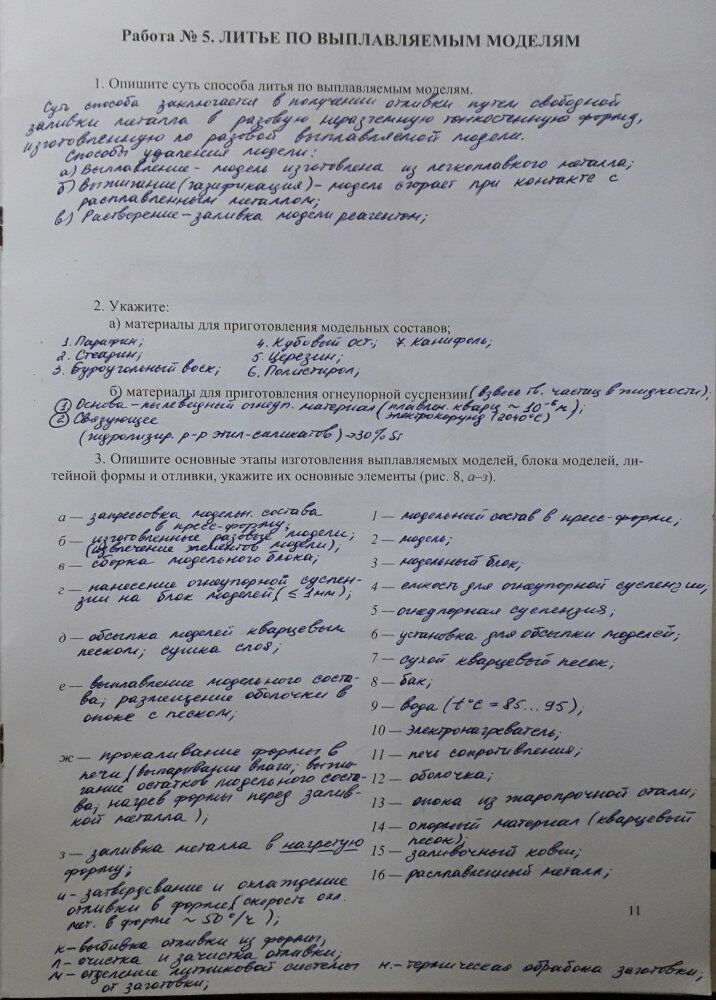 Работа № 5. ЛИТЬЕ ПО ВЫПЛАВЛЯЕМЫМ МОДЕЛЯМ
1. Опишите суть способа литья по выплавляемым моделям.
Суть способа заключается в получении отливки путем свободной
заливки металла в разовую неразъемную тонкостенную форму,
изготовленную по разовой выплавляемой модели.
Способы удаления модели:
а) Выплавление - модель изготовлена из легкоплавкого металла;
б) Выжигание (газификация) - модель сгорает при контакте с
расплавленным металлом;
в) Растворение - заливка модели реагентом;
2. Укажите:
а) материалы для приготовления модельных составов;
1. Парафин; 4. Кубовый ост.; 7. Канифоль;
2. Стеарин; 5. Церезин;
3. Буроугольный воск; 6. Полистирол;
б) материалы для приготовления огнеупорной суспензии (взвесь тв. частиц в жидкости);
1 Основа - пылевидный огнеуп. материал (плавлен. кварц ~ 10⁻⁶ м);
(электрокорунд (2040°C)
2 Связующее
(гидролизир. р-р этил-силикатов) →30% Si
3. Опишите основные этапы изготовления выплавляемых моделей, блока моделей, ли-
тейной формы и отливки, укажите их основные элементы (рис. 8, а–з).
а — запрессовка модельн. состава
в пресс-форму;
б — изготовленные разовые модели;
(извлечение элементов модели);
в — сборка модельного блока;
г — нанесение огнеупорной суспен-
зии на блок моделей (≤ 1мм);
д — обсыпка моделей кварцевым
песком; сушка слоя;
е — выплавление модельного соста-
ва; размещение оболочки в
опоке с песком;
ж — прокаливание формы в
печи (выпаривание влаги; выжи-
гание остатков модельного соста-
ва; нагрев формы перед залив-
кой металла);
з — заливка металла в нагретую
форму;
и - затвердевание и охлаждение
отливки в форме (скорость охл.
мет. в форме ~ 50°/ч);
к - выбивка отливки из формы;
л - очистка и зачистка отливки;
м - отделение литниковой системы
от заготовки;
н. - термическая обрабока заготовки;
1 — модельный состав в пресс-форме;
2 — модель;
3 — модельный блок;
4 — емкость для огнеупорной суспензии;
5 — огнеупорная суспензия;
6 — установка для обсыпки моделей;
7 — сухой кварцевый песок;
8 — бак;
9 — вода (t°C = 85...95);
10 — электронагреватель;
11 — печь сопротивления;
12 — оболочка;
13 — опока из жаропрочной стали;
14 — опорный материал (кварцевый
песок);
15 — заливочный ковш;
16 — расплавленный металл;
11